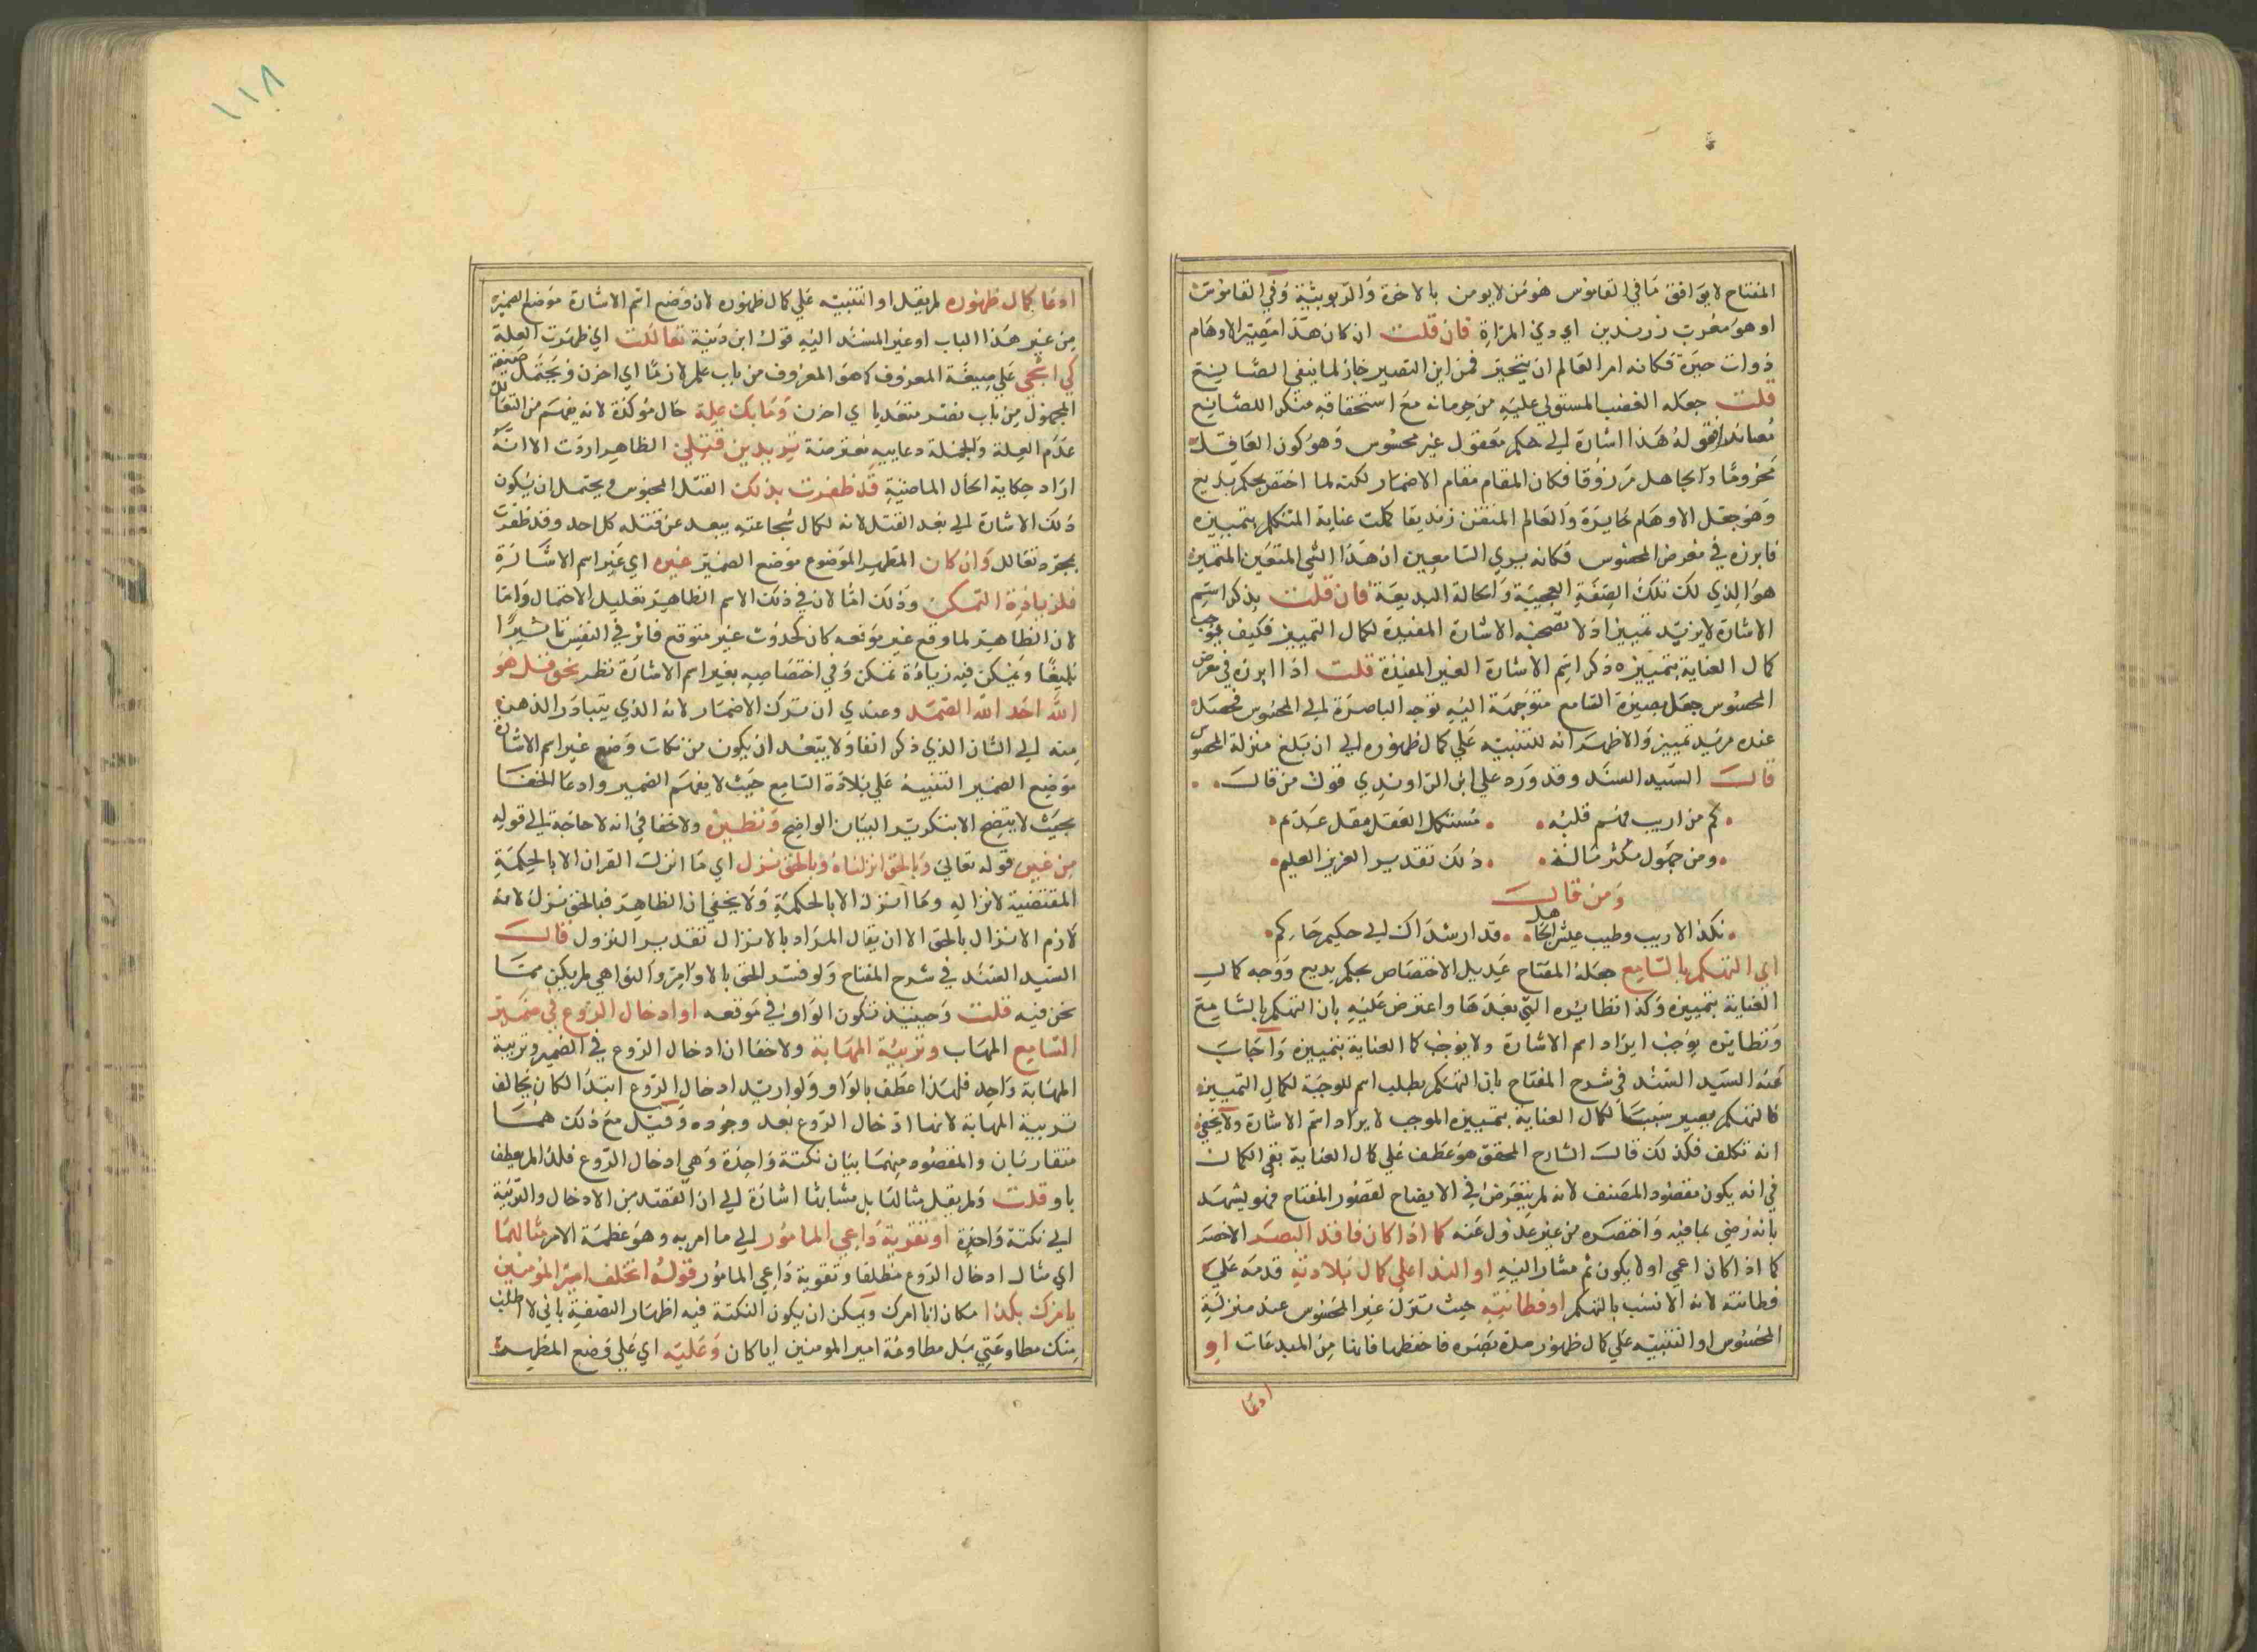 المفتاح لا يوافق ما في القاموس هو من لا يومن بالاخرة والربوبية وفي القاموس
او هو معرب زن دين اي دين المراة فان قلت ان كان هذا مصير الاوهام
ذوات حيرة فكانه امر العالم ان يتحير فمن اين التصيير جاز لما ينفي الصانع
قلت جعله الغضب المستولي عليه من حرمانه مع استحقاقه منكرا للصانع
معاندا فقوله هذا اشارة الي حكم معقول غير محسوس وهو كون العاقل
محروما والجاهل مرزوقا فكان المقام مقام الاضمار لكنه لما اختص بحكم بديع
وهو جعل الاوهام حايرة والعالم المتقن زنديقا كملت عناية المتكلم بتمييزه
فابرزه في معرض المحسوس فكانه يري السامعين ان هذا الشي المتعين المتميز
هو الذي لك تلك الصفة العجيبة والحالة البديعة فان قلت بذكر اسم
الاشارة لا يزيد تمييزا ولا تصحبه الاشارة المفيدة لكمال التمييز فكيف يوجب
كمال العناية بتمييزه ذكر اسم الاشارة الغير المفيدة قلت اذا ابرزه في معرض
المحسوس جعل بصيرة السامع متوجهة اليه توجه الباصرة الي المحسوس فحصل
عنده مزيد تمييز والاظهر انه للتنبيه علي كمال ظهوره الي ان بلغ منزلة المحسوس
قال السيد السند وقد ورد علي ابن الراوندي قول من قال
كم من اريب فهم قلبه مستكمل العقل مقل عديم
ومن جهول مكثر ماله ذلك تقدير العزيز العليم
ومن قال
نكد الاريب وطيب عيش الجاهل قد ارشداك الي حكيم حاكم
اي التهكم بالسامع جعله المفتاح عديل الاختصاص بحكم بديع ووجه كمال
العناية بتمييزه وكذا نظايره التي بعدها واعترض عليه بان التهكم بالسامع
ونظايره يوجب ايراد اسم الاشارة ولا يوجب كمال العناية بتمييزه واجاب
عنه السيد السند في شرح المفتاح بان التهكم يطلب اسم الموجبة لكمال التمييز
فالتهكم يصير سببا لكمال العناية بتمييزه الموجب لايراد اسم الاشارة ولا يخفي
انه تكلف فلذلك قال الشارح المحقق هو عطف علي كمال العناية بقي الكلام
في انه يكون مقصود المصنف لانه لم يتعرض في الايضاح لقصور المفتاح فهو يشهد
بانه رضي بما فيه واختصره من غير عدول عنه كما اذا كان فاقد البصر الاخصر
كما اذا كان اعمي او لا يكون ثم مشار اليه او الندا علي كمال بلادته قدمه علي
فطانته لانه الانسب بالتهكم او فطانته حيث تنزل غير المحسوس عند منزلة
المحسوس او التنبيه علي كمال ظهور مدة بصره فاحفظها فانها من المبدعات او
ادعا
١١٨
ادعا كمال ظهوره لم يقل او التنبيه علي كمال ظهوره لان وضع اسم الاشارة موضع الضمير
من غير هذا الباب او غير المسند اليه قول ابن دمنية تعاللت اي ظهرت العلة
كي اشجي علي صيغة المعروف كما هو المعروف من باب علم لازما اي احزن ويحتمل صيغة
المجهول من باب نصر متعديا اي احزن وما بك علة حال موكدة لانه يفهم من التعالل
عدم العلة والجملة دعاييه معترضة تريدين قتلي الظاهر اردت الا انه
اراد حكاية الحال الماضية قد ظفرت بذلك القتل المحبوس ويحتمل ان يكون
ذلك الاشارة الي بعد القتل لانه لكمال شجاعته يبعد عن قتله كل احد وقد ظفرت
بمجرد تعالل وان كان المظهر الموضوع موضع الضمير غيره اي غير اسم الاشارة
فلزيادة التمكن وذلك اما لان في ذلك الاسم الظاهر تقليل الاحتمال واما
لان الظاهر لما وقع غير موقعه كان كحدوث غير متوقع فاثر في النفس تاثيرا
بليغا وتمكن فيه زيادة تمكن وفي اختصاصه بغير اسم الاشارة نظر نحو قل هو
الله احد الله الصمد وعندي ان ترك الاضمار لانه الذي يتبادر الذهن
منه الي الشان الذي ذكر انفا ولا يبعد ان يكون من نكات وضع غير اسم الاشارة
موضع الضمير التنبيه علي بلادة السامع حيث لا يفهم الضمير وادعا الخفا
بحيث لا يتضح الا بتكرير البيان الواضح ونظيره ولا خفا في انه لا حاجة الي قوله
من غيره قوله تعالي وبالحق انزلناه وبالحق نزل اي ما انزلت القران الا بالحكمة
المقتضية لانزاله وما انزله الا بالحكمة ولا يخفي ان الظاهر فبالحق نزل لانه
لازم الانزال بالحق الا ان يقال المراد بالانزال تقدير النزول قال
السيد السند في شرح المفتاح ولو فسر الحق بالاوامر والنواهي لم يكن مما
نحن فيه قلت وحينيذ تكون الواو في موقعه او ادخال الروع في ضمير
السامع المهاب وتربية المهابة ولا خفا ان ادخال الروع في الضمير وتربية
المهابة واحد فلهذا عطف بالواو ولو اريد ادخال الروع ابتدا لكان يخالف
تربية المهابة لانها ادخال الروع بعد وجوده وقيل مع ذلك هما
متقاربان والمقصود منهما بيان نكتة واحدة وهي ادخال الروع فلذا لم يعطف
باو قلت ولم يقل مثالها بل مثالهما اشارة الي ان القصد من الادخال والتربية
الي نكتة واحدة او تقوية داعي المامور الي ما امر به وهو عظمة الامر مثالهما
اي مثال ادخال الروع مطلقا وتقوية داعي المامور قول الخلفا امير المومنين
يامرك بكذا مكان انا امرك ويمكن ان يكون النكتة فيه اظهار النصفة باني لا اطلب
منك مطاوعتي بل مطاوعة امير المومنين ايا كان وعليه اي علي وضع المظهر